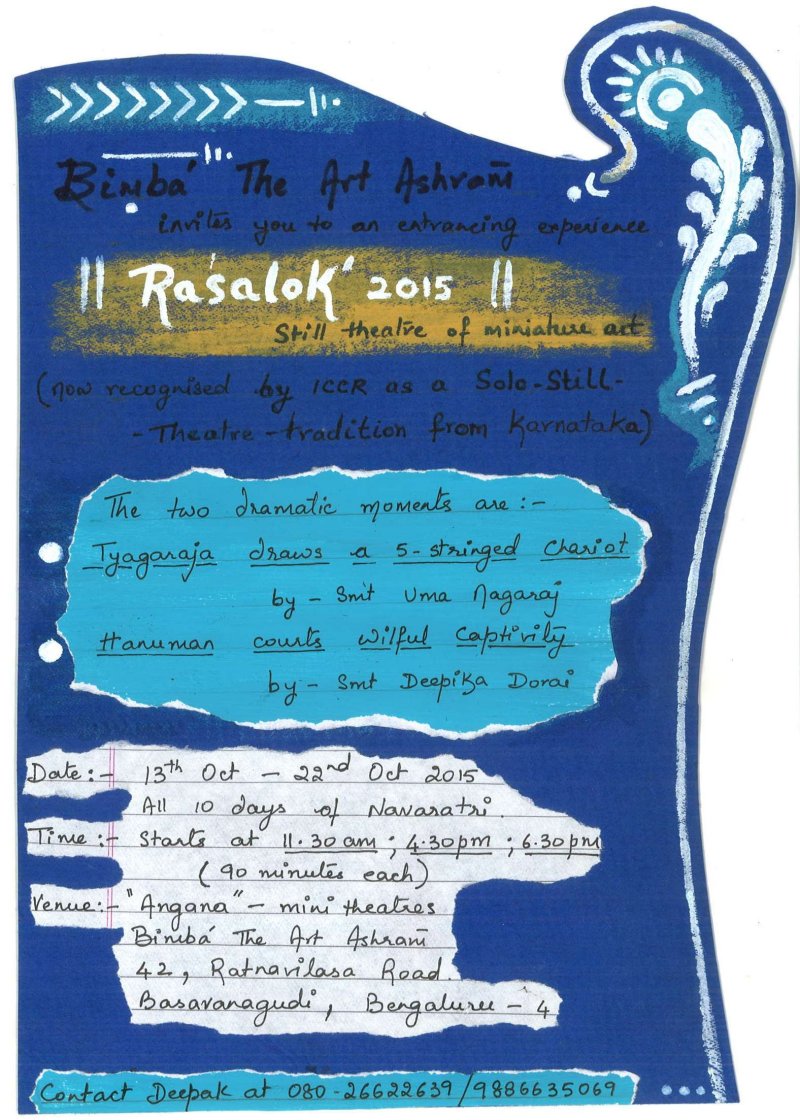 Bimba' The Art Ashram
invites you to an entrancing experience
|| 'Rasalok' 2015 ||
Still theatre of miniature art
(now recognised by ICCR as a Solo-Still-
-Theatre-tradition from Karnataka)
The two dramatic moments are:-
Tyagaraja draws a 5-stringed Chariot
by - Smt Uma Nagaraj
Hanuman courts wilful Captivity
by - Smt Deepika Dorai
Date:- 13th Oct - 22nd Oct 2015
All 10 days of Navaratri.
Time:- Starts at 11.30 am ; 4.30pm ; 6.30pm
(90 minutes each)
Venue:- "Angana" - mini theatres
Bimba' The Art Ashram
42, Ratnavilasa Road.
Basavanagudi, Bengaluru - 4
Contact Deepak at 080-26622639/9886635069